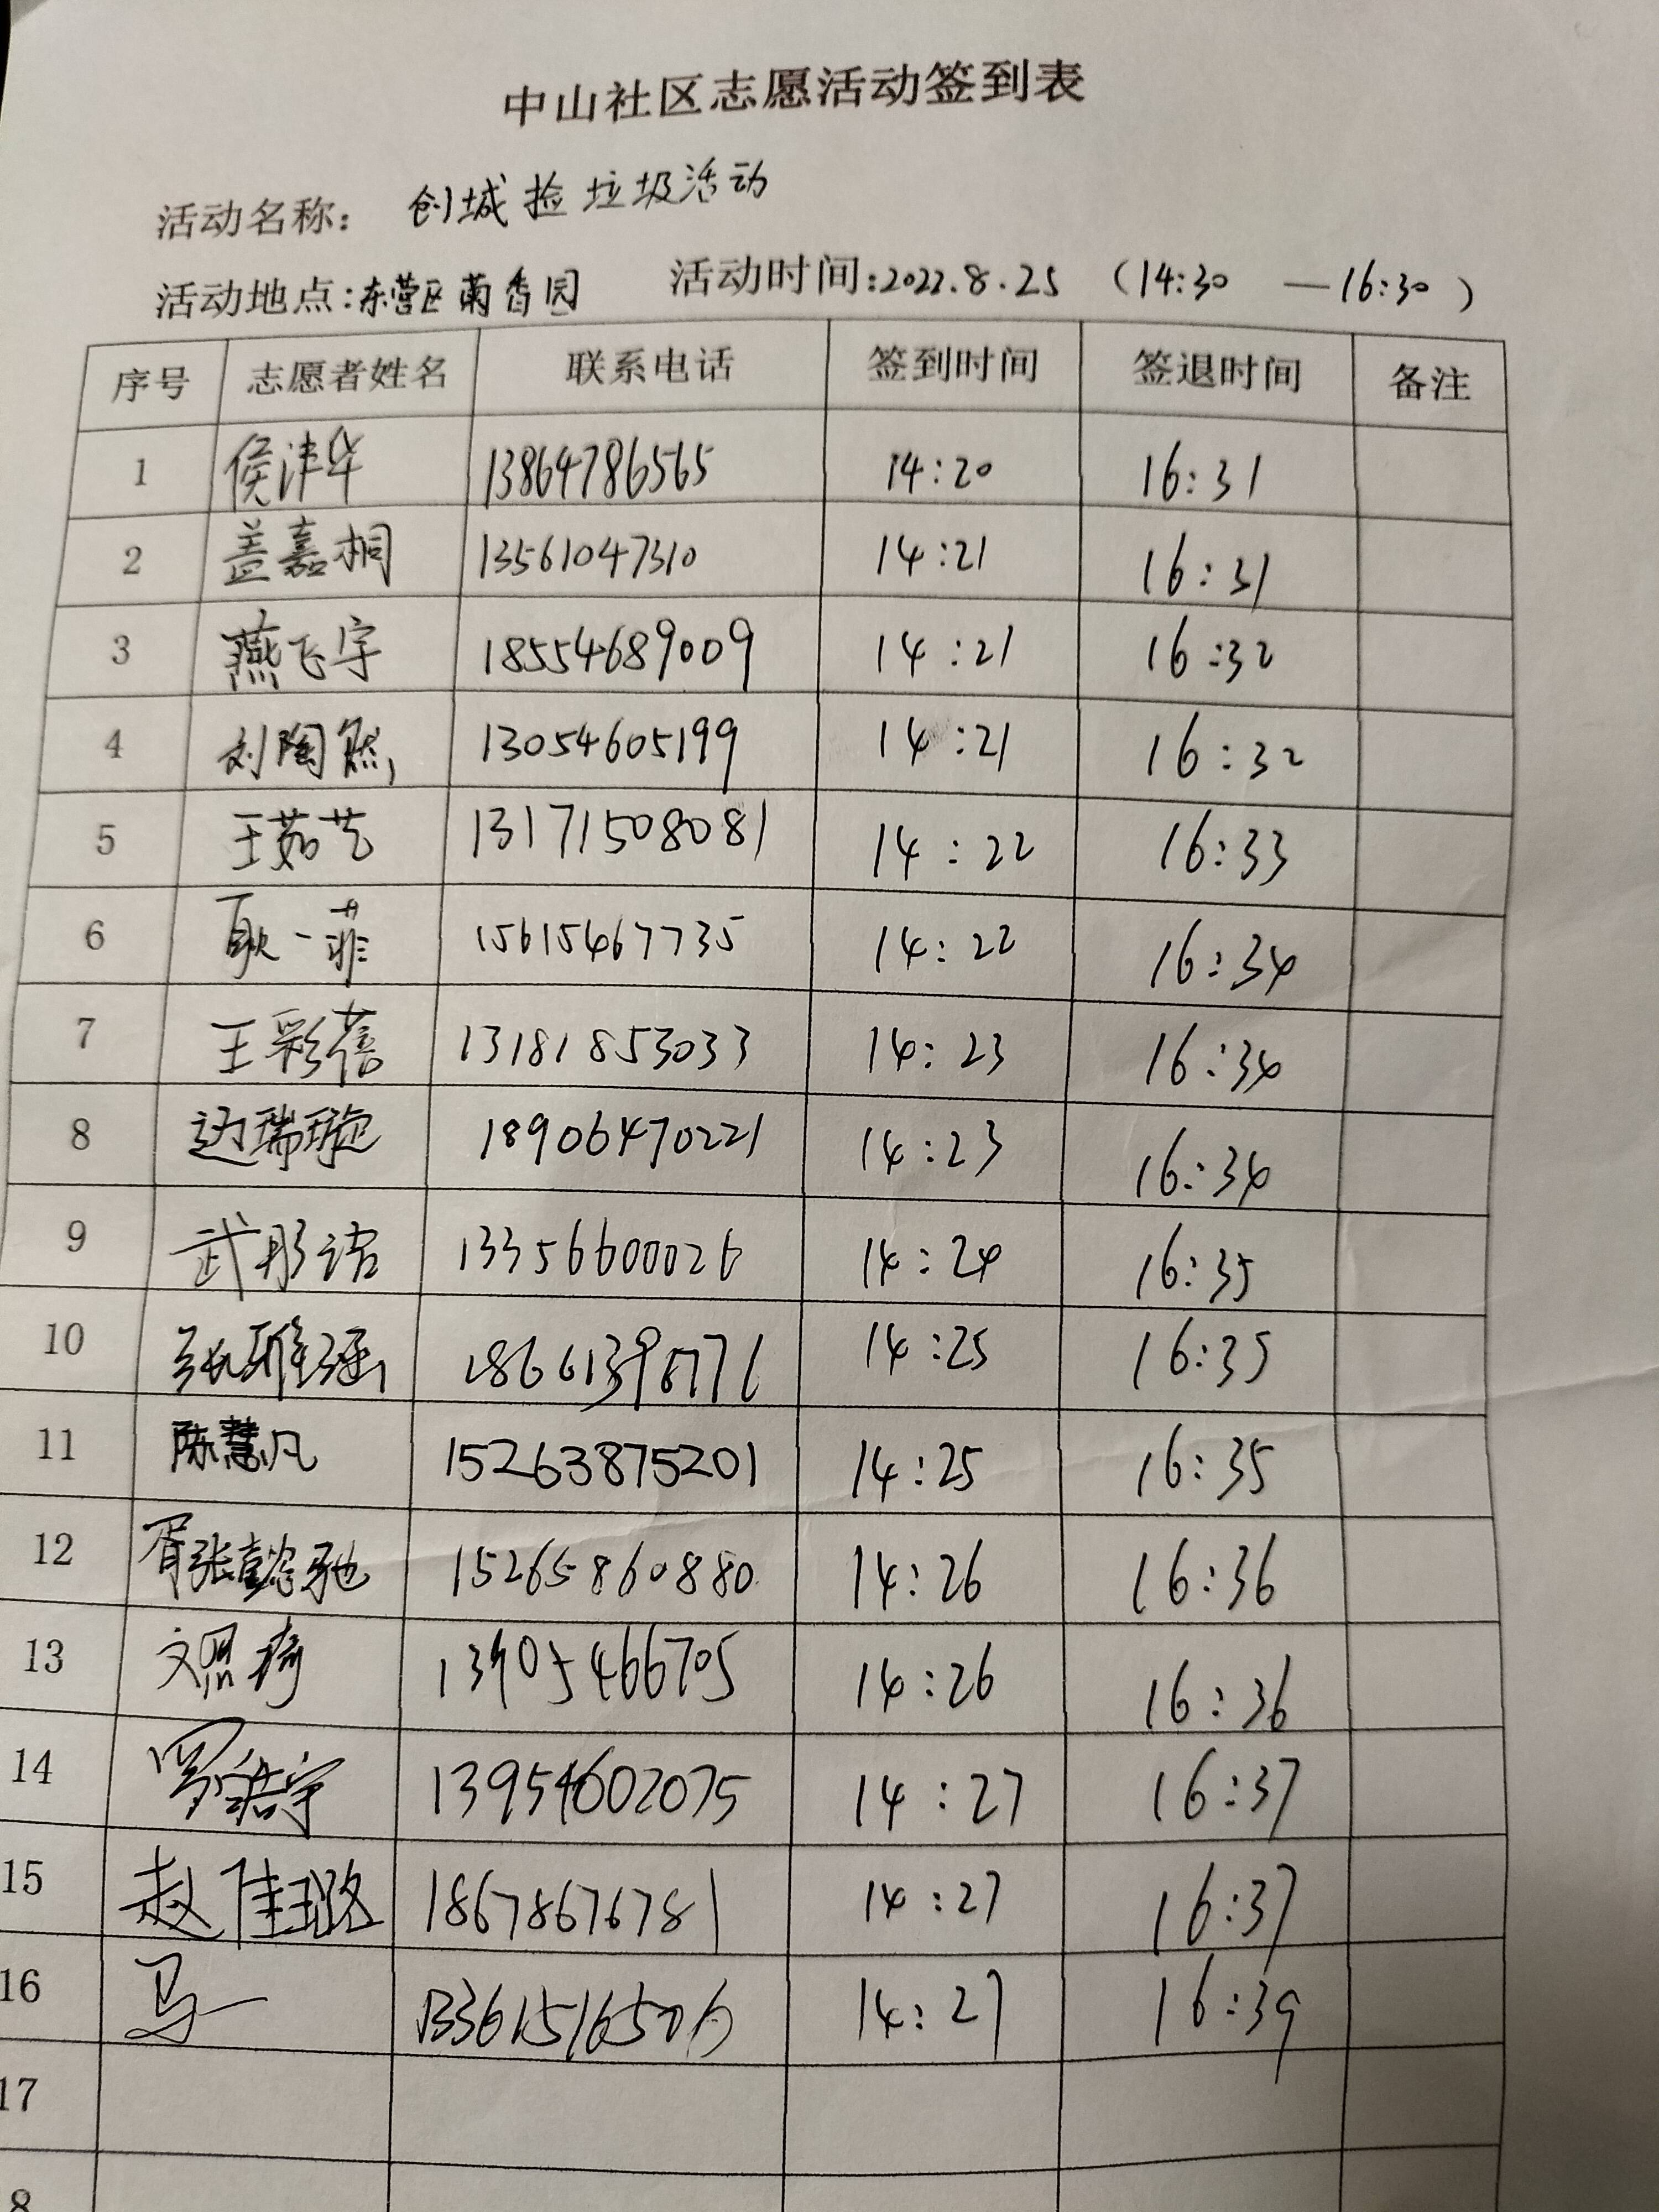 中山社区志愿活动签到表
活动名称: 创城捡垃圾活动
活动地点:东营区蘭香园 活动时间:2022.8.25 (14:30 —16:30)
序号 志愿者姓名 联系电话 签到时间 签退时间 备注
1 侯沣华 13864786565 14:20 16:31
2 盖嘉桐 13561047310 14:21 16:31
3 燕飞宇 18554689009 14:21 16:32
4 刘陶然 13054605199 14:21 16:32
5 王茹艺 13171508081 14:22 16:33
6 耿一菲 15615467735 14:22 16:34
7 王彩蓓 13181853033 14:23 16:34
8 瑞璇 18906470221 14:23 16:34
9 武彤诺 13356600026 14:24 16:35
10 张雅涵 14:25 16:35
11 陈慧凡 15263875201 14:25 16:35
12 胥张懿驰 15265860880 14:26 16:36
13 文思琦 13905466705 14:26 16:36
14 罗浩宇 13954602075 14:27 16:37
15 赵佳璐 18678676781 14:27 16:37
16 马一 13361516506 14:27 16:39
17